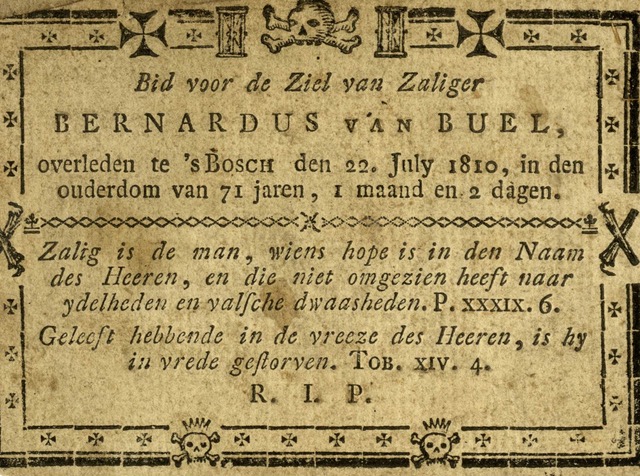 Bid voor de Ziel van Zaliger
BERNARDUS VAN BUEL,
overleden te 'sBOSCH den 22. July 1810, in den
ouderdom van 71 jaren, 1 maand en 2 dagen.
Zalig is de man, wiens hope is in den Naam
des Heeren, en die niet omgezien heeft naar
ydelheden en valſche dwaasheden. P. XXXIX. 6.
Geleeft hebbende in de vreeze des Heeren, is hy
in vrede geſtorven. TOB. XIV. 4.
R. I. P.